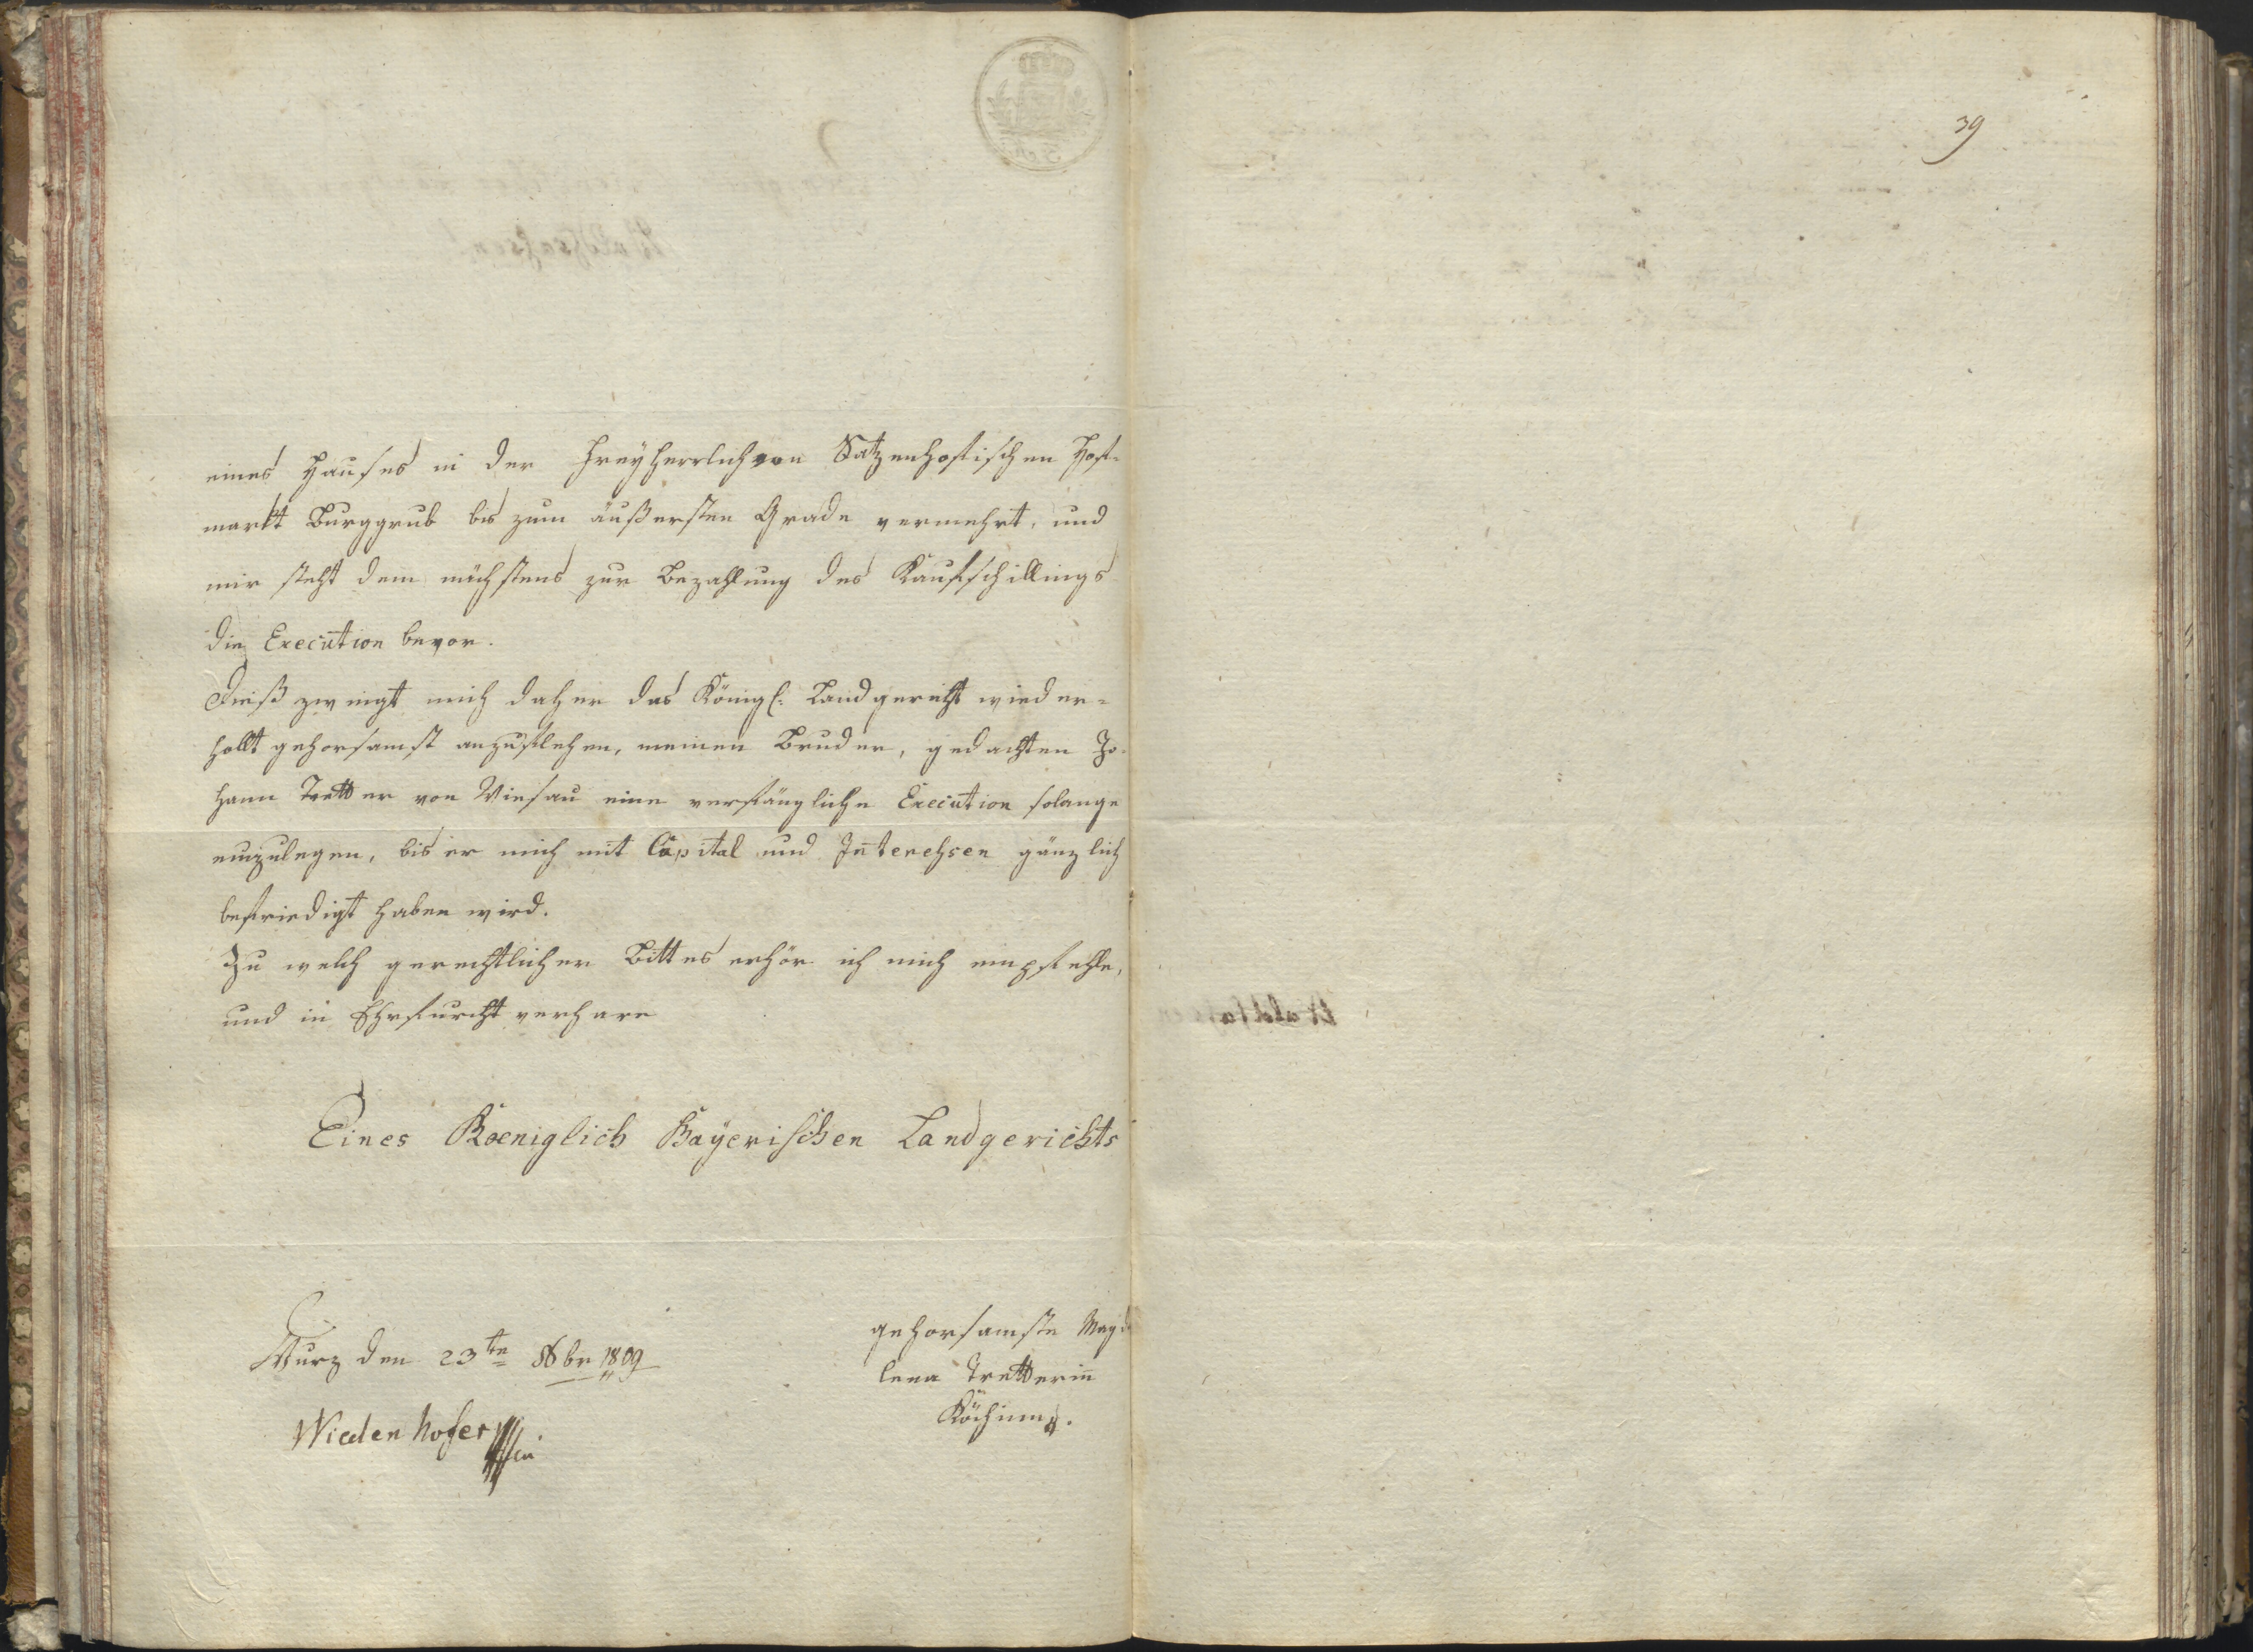 39
eines Hauses in der Freyherrlich von Satzenhofischen Hof-
markt Burggrub bis zum äußersten Grade vermehrt, und
mir steht dem nächstens zur Bezahlung des Kaufschillings
die Execution bevor.
Dieß zwingt mich daher das Königl: Landgericht wieder-
hollt gehorsamst anzuflehen, meinen Bruder, gedachten Jo-
hann Tretter von Wiesau eine verfängliche Execution solange
einzulegen, bis er mich mit Capital und Interehsen gänzlich
befriedigt haben wird.
Zu welch gerechtlicher Bittes erhör ich mich empfehle,
und in Ehrfurcht verhare
Eines Koeniglich Bayerischen Landgerichts
Wurz den 23te 8br 1809
Wiedenhofer
gehorsamste Magd
lena Tretterin
Köchinn